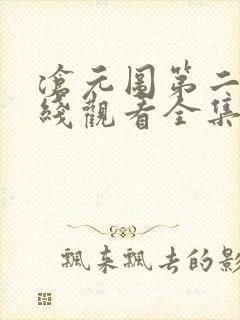 滄元圖第二
綫觀看全集
飄來飄去的影